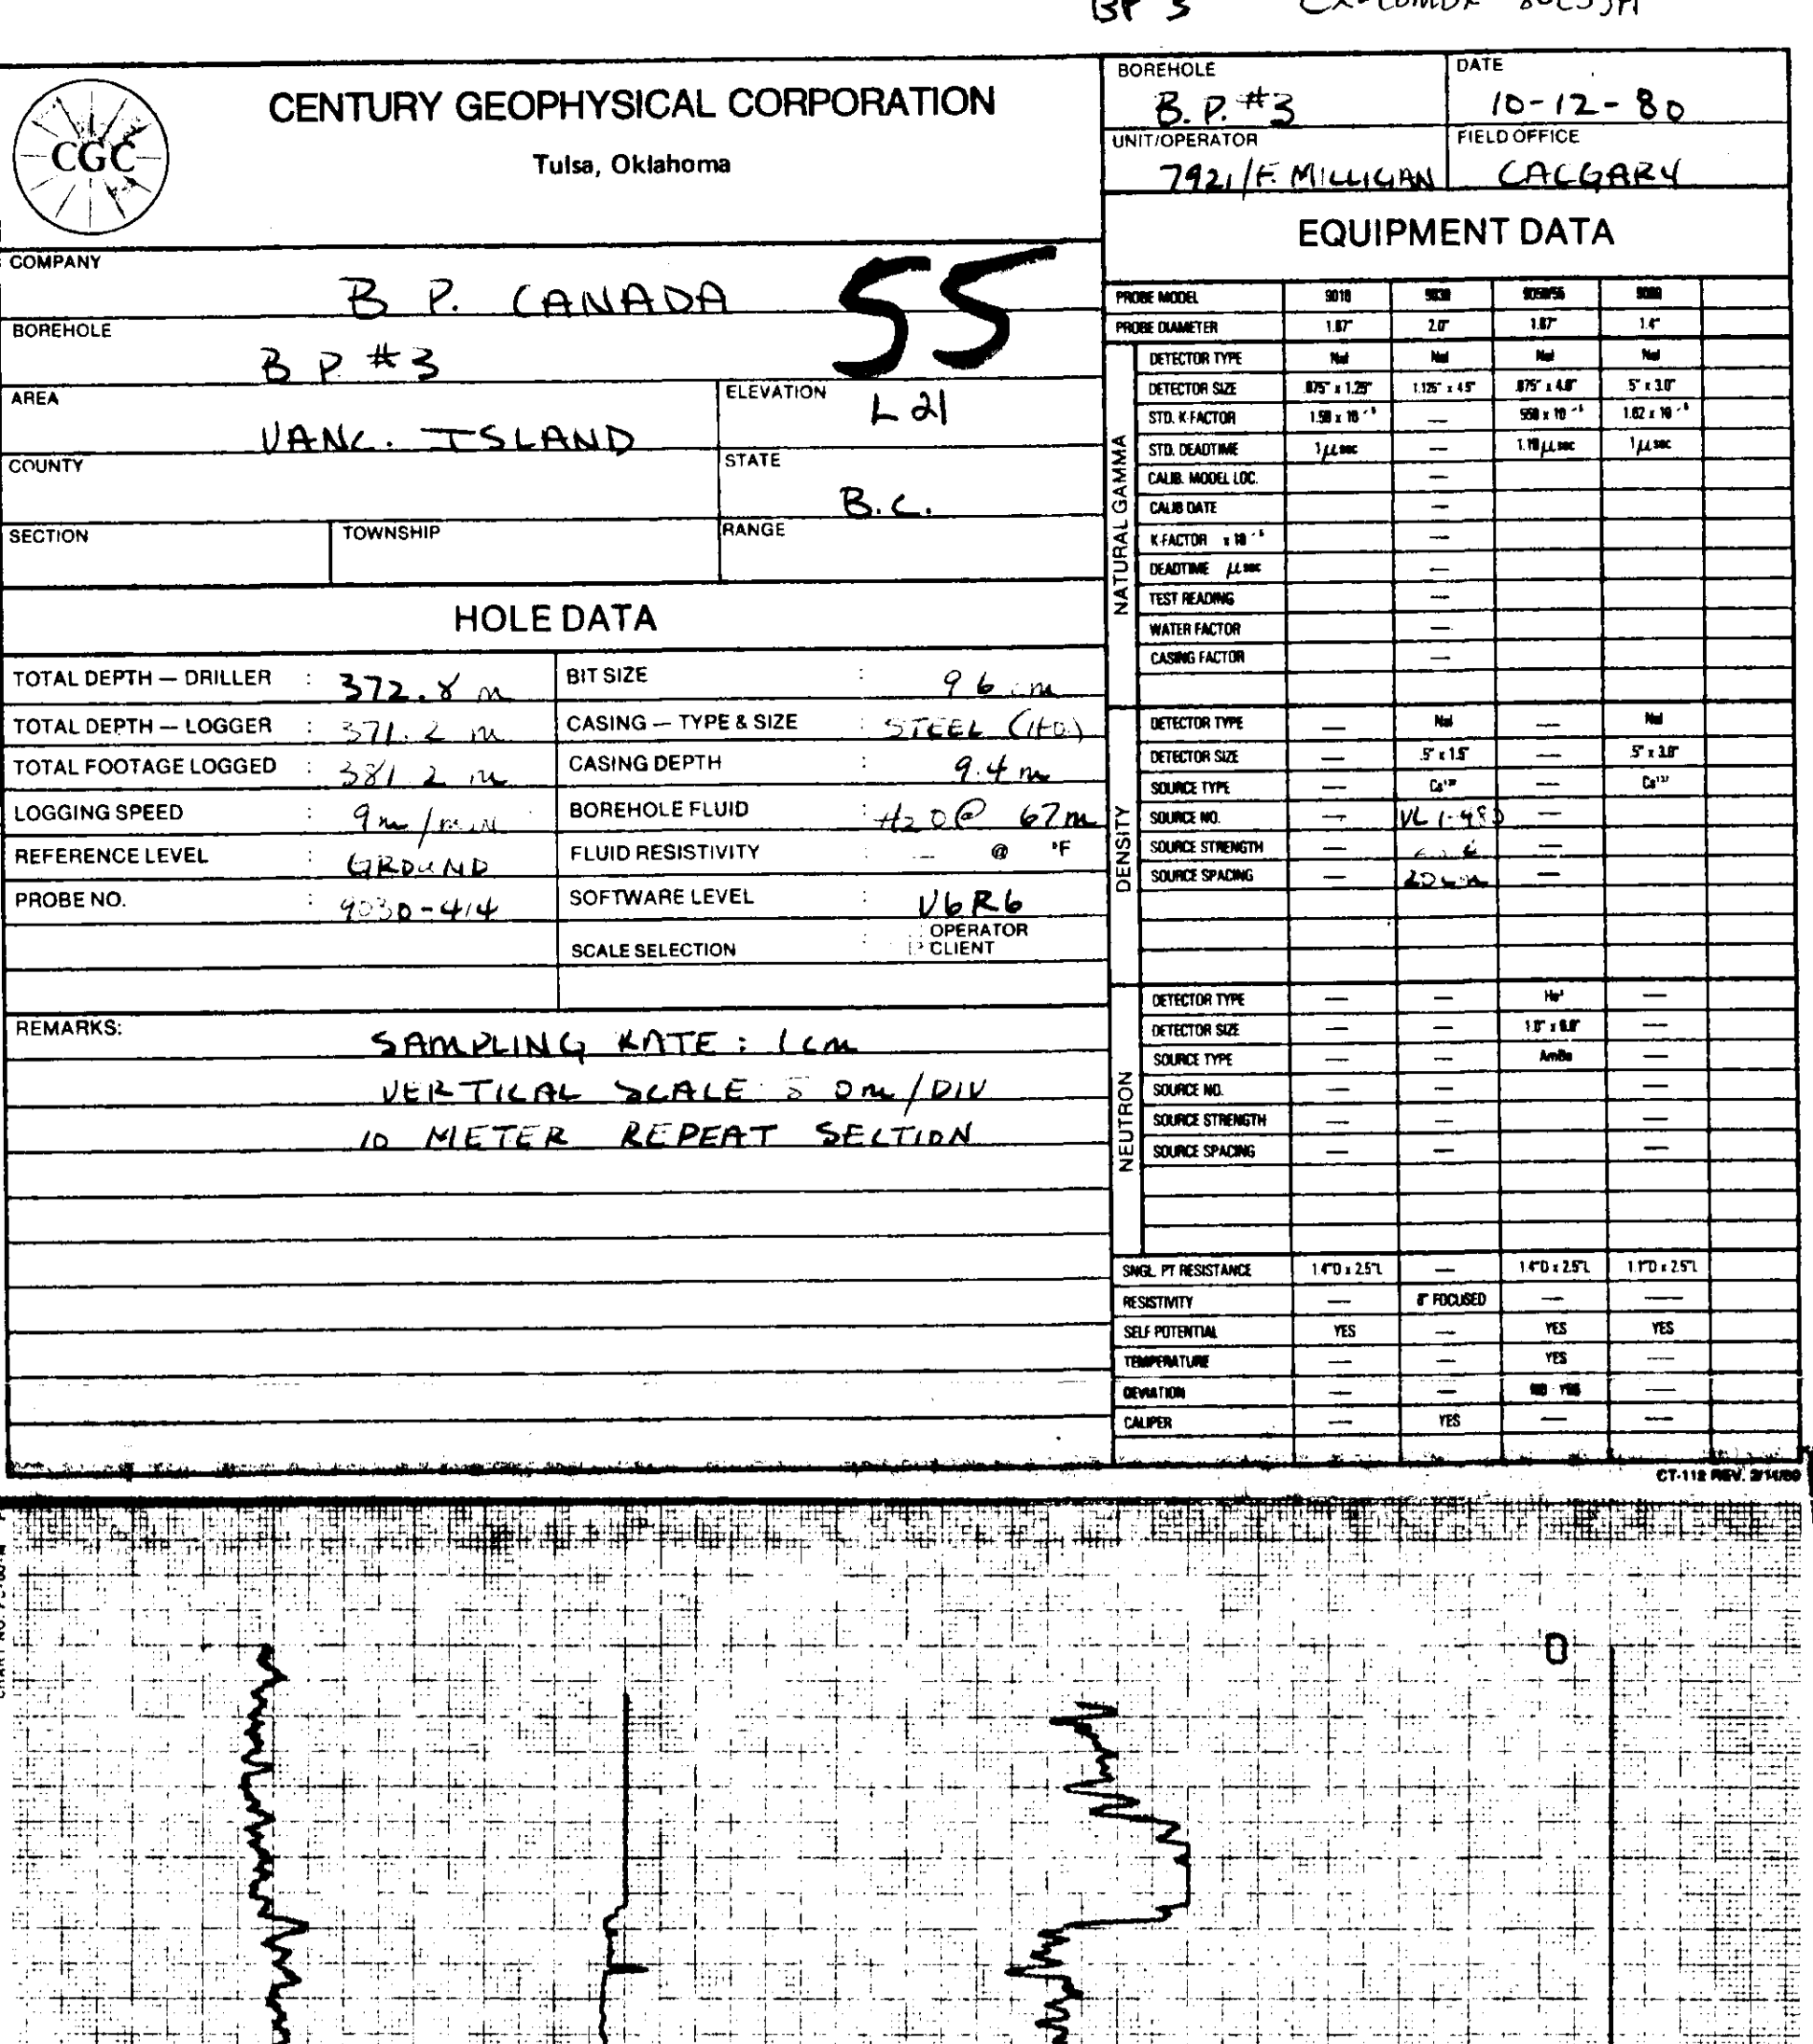 BP 3
CENTURY GEOPHYSICAL CORPORATION
Tulsa, Oklahoma
CGC
BOREHOLE B. P. #3
DATE 10-12-80
UNIT/OPERATOR 7921/F. MILLIGAN
FIELD OFFICE CALGARY
COMPANY B P. CANADA
55
BOREHOLE B P #3
AREA VANC. ISLAND
ELEVATION L21
COUNTY
STATE B.C.
SECTION
TOWNSHIP
RANGE
HOLE DATA
TOTAL DEPTH — DRILLER : 372.8 m
BIT SIZE : 96 m
TOTAL DEPTH — LOGGER : 371.2 m
CASING — TYPE & SIZE : STEEL
TOTAL FOOTAGE LOGGED : 381.2 m
CASING DEPTH : 9.4 m
LOGGING SPEED : 9m/min
BOREHOLE FLUID : H20@ 67m
REFERENCE LEVEL : GROUND
FLUID RESISTIVITY : — @ °F
PROBE NO. : 9030-414
SOFTWARE LEVEL : V6R6
SCALE SELECTION : OPERATOR
CLIENT
REMARKS:
SAMPLING RATE : 1cm
VERTICAL SCALE 5 0m/DIV
10 METER REPEAT SECTION
EQUIPMENT DATA
PROBE MODEL 9010 9030 9050/55 9060
PROBE DIAMETER 1.87" 2.0" 1.87" 1.4"
NATURAL GAMMA
DETECTOR TYPE NaI NaI NaI NaI
DETECTOR SIZE .875" x 1.25" 1.125" x 4.5" .875" x 4.0" .5" x 3.0"
STD. K-FACTOR — 
STD. DEADTIME 1 μsec — μsec 1 μsec
CALIB. MODEL LOC. —
CALIB DATE —
K-FACTOR x 10⁻⁵ —
DEADTIME μsec —
TEST READING —
WATER FACTOR —
CASING FACTOR —
DENSITY
DETECTOR TYPE — NaI — NaI
DETECTOR SIZE — .5" x 1.5" — .5" x 3.0"
SOURCE TYPE — Cs¹³⁷ — Cs¹³⁷
SOURCE NO. — —
SOURCE STRENGTH — —
SOURCE SPACING — 20 cm —
NEUTRON
DETECTOR TYPE — — He³ —
DETECTOR SIZE — — —
SOURCE TYPE — — AmBe —
SOURCE NO. — — —
SOURCE STRENGTH — — —
SOURCE SPACING — — —
SNGL. PT RESISTANCE 1.4"D x 2.5"L — 1.4"D x 2.5"L 1.1"D x 2.5"L
RESISTIVITY — FOCUSED — —
SELF POTENTIAL YES — YES YES
TEMPERATURE — — YES —
DEVIATION — — —
CALIPER — YES — —
CT-112 REV. 2/14/80
0